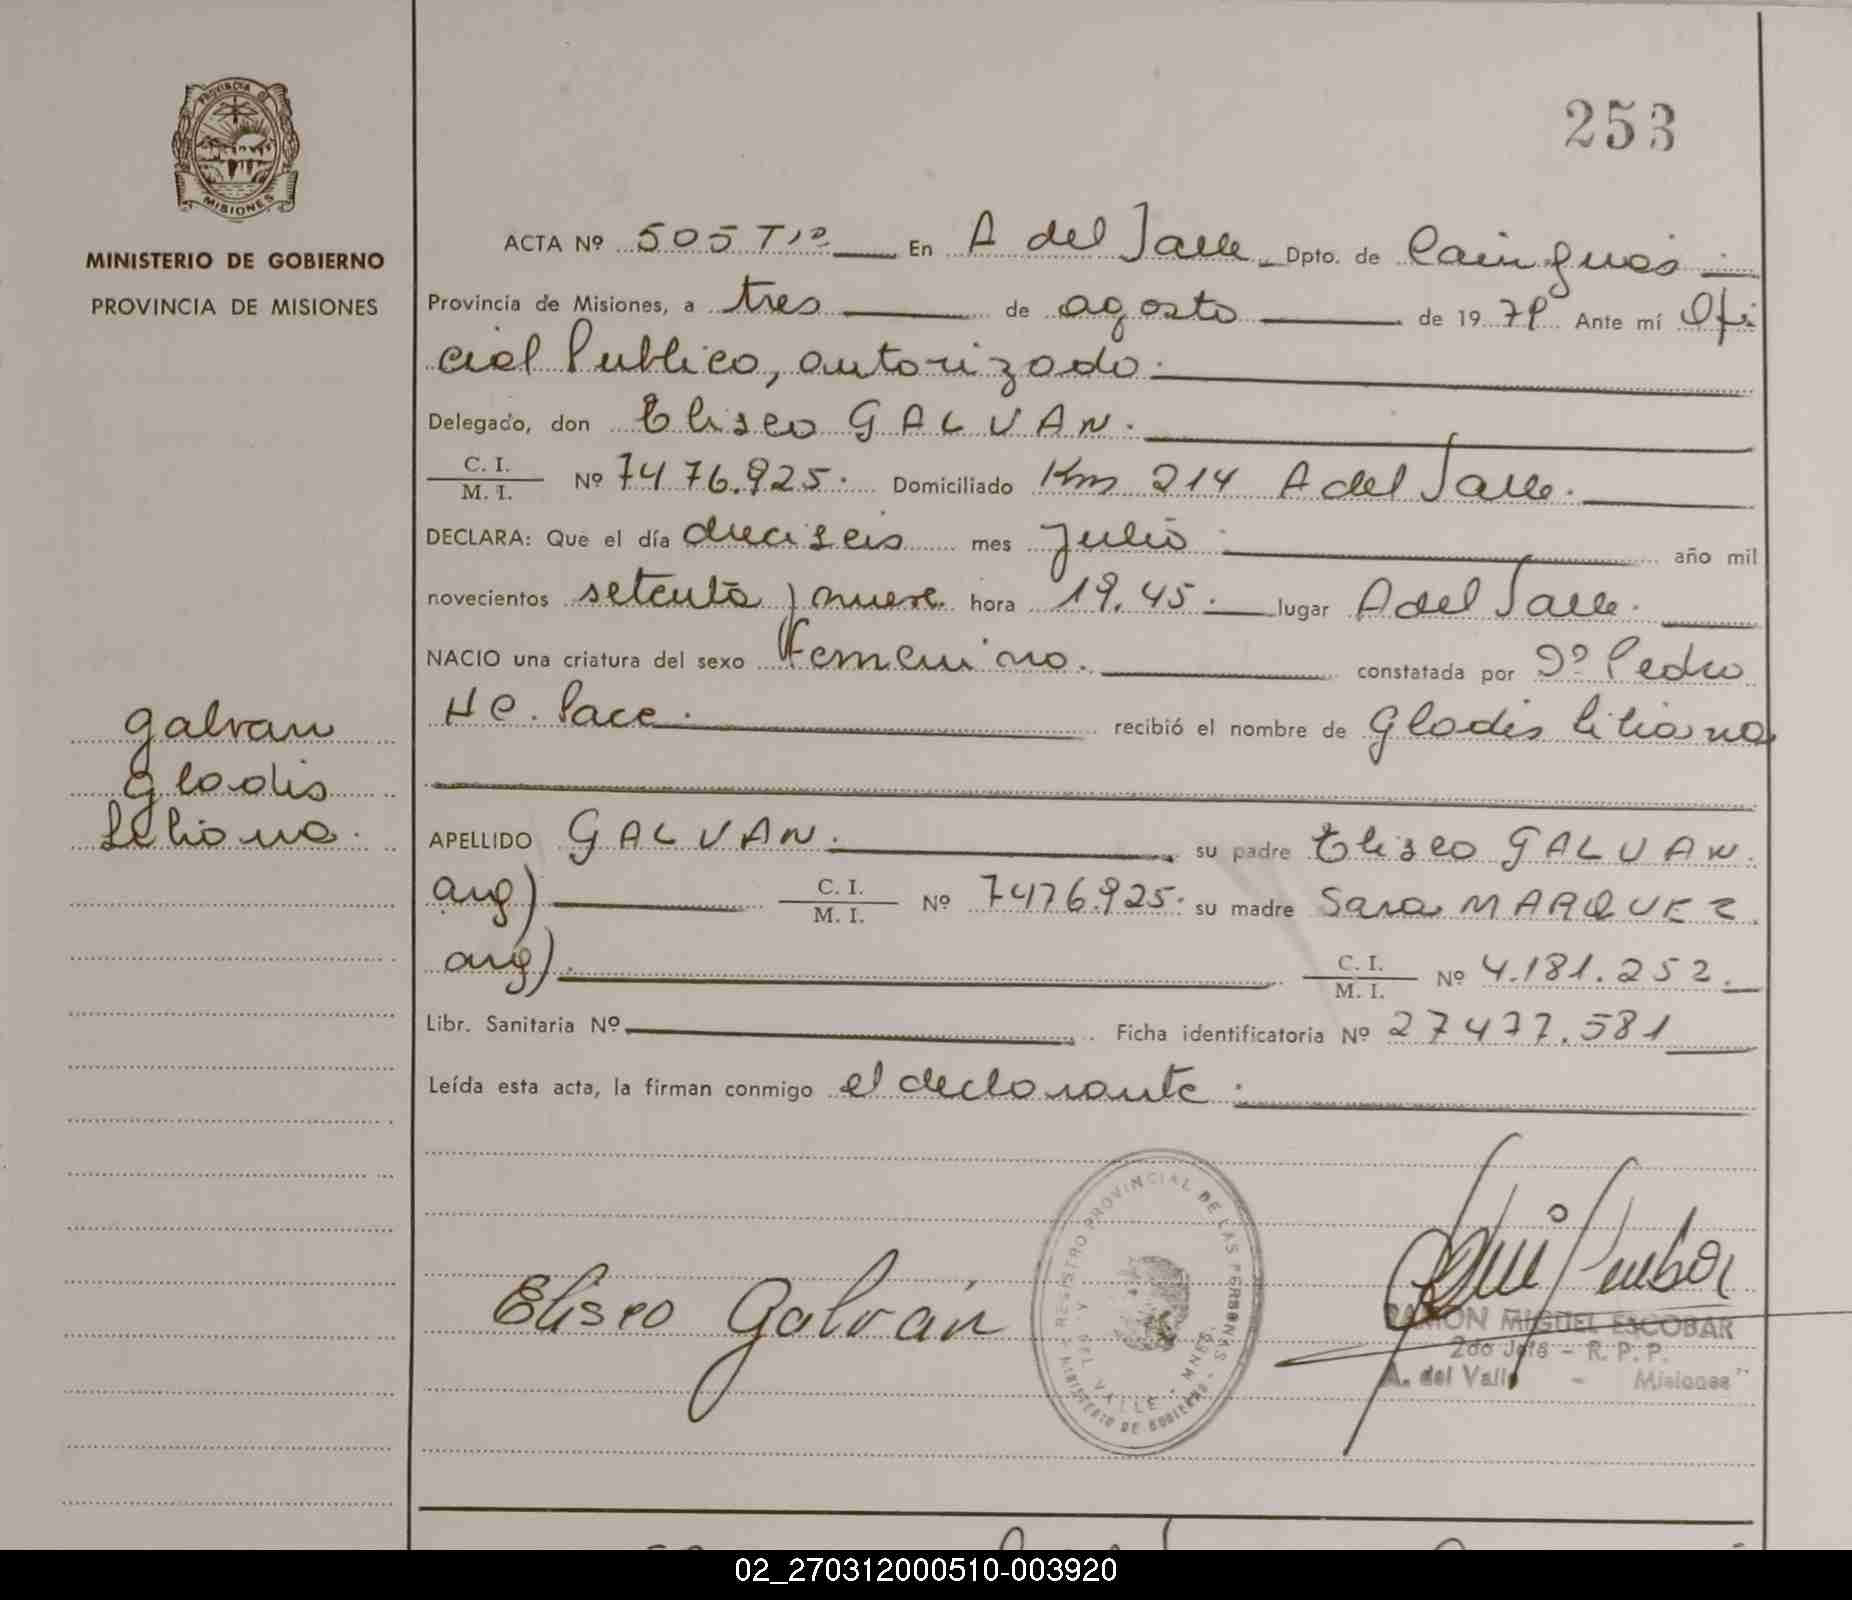 PROVINCIA DE
MISIONES
MINISTERIO DE GOBIERNO
PROVINCIA DE MISIONES
253
ACTA Nº 505 Tº En A del Valle Dpto. de Cainguás
Provincia de Misiones, a tres de agosto de 1979 Ante mí Ofi
cial Publico, autorizado.
Delegado, don Eliseo GALVAN.
C. I.
M. I. Nº 7476.925. Domiciliado Km 214 A del Valle.
DECLARA: Que el día dieciseis mes Julio año mil
novecientos setenta y nueve hora 19,45. lugar A del Valle.
NACIO una criatura del sexo Femenino. constatada por Dº Pedro
H C. Pace. recibió el nombre de Gladis Liliana
Galvan
Gladis
Liliana.
APELLIDO GALVAN. su padre Eliseo GALVAN.
arg) C. I.
M. I. Nº 7476.925. su madre Sara MARQUEZ
arg). C. I.
M. I. Nº 4.181.252.
Libr. Sanitaria Nº Ficha identificatoria Nº 27477.581
Leída esta acta, la firman conmigo el declarante.
REGISTRO PROVINCIAL DE LAS PERSONAS
MINISTERIO DE GOBIERNO
DEL VALLE - MNES.
Eliseo Galván
RAMON MIGUEL ESCOBAR
2do Jefe - R. P. P.
A. del Valle - Misiones
02_270312000510-003920